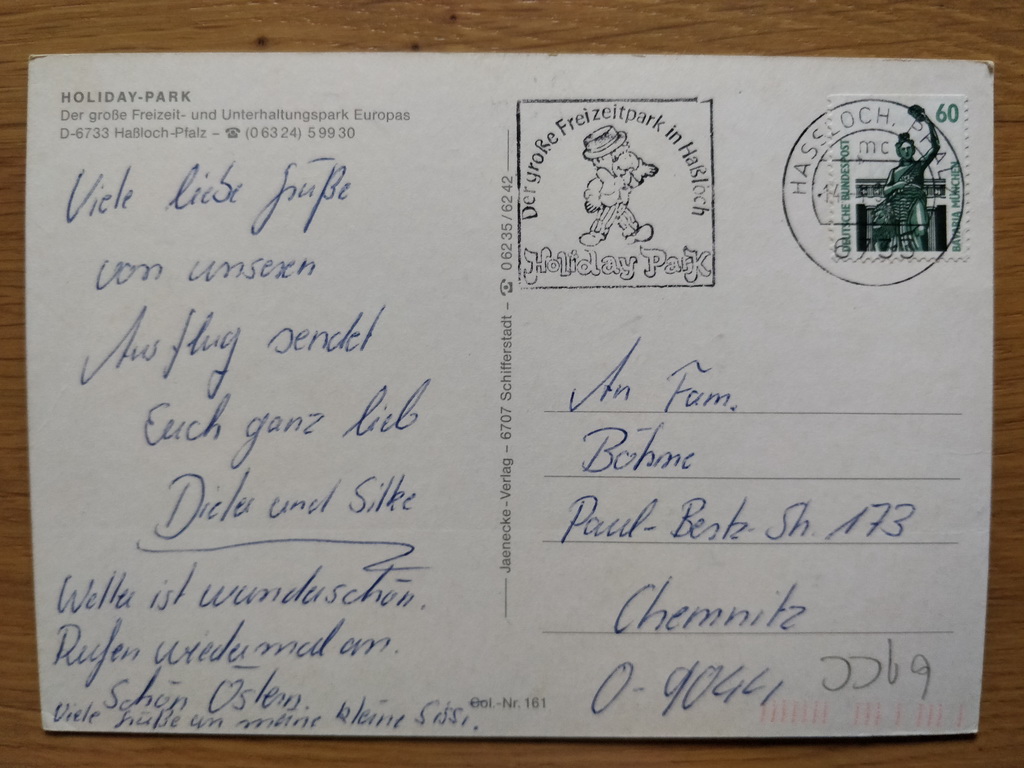 HOLIDAY-PARK
Der große Freizeit- und Unterhaltungspark Europas
D-6733 Haßloch-Pfalz – ☎ (0 63 24) 5 99 30
Viele liebe Grüße
von unseren
Ausflug sendet
Euch ganz lieb
Dieter und Silke
Wetter ist wunderschön.
Rufen wiedermal an.
Schön Ostern.
Viele Grüße an meine kleine Sissi.
Jaenecke-Verlag – 6707 Schifferstadt – ☎ 0 62 35 / 62 42
Col.-Nr. 161
Der große Freizeitpark in Haßloch
Holiday Park
HASSLOCH, PFALZ
mc
6733
60
DEUTSCHE BUNDESPOST
BAVARIA MÜNCHEN
An Fam.
Böhme
Paul-Bertz-Str. 173
Chemnitz
O-9044